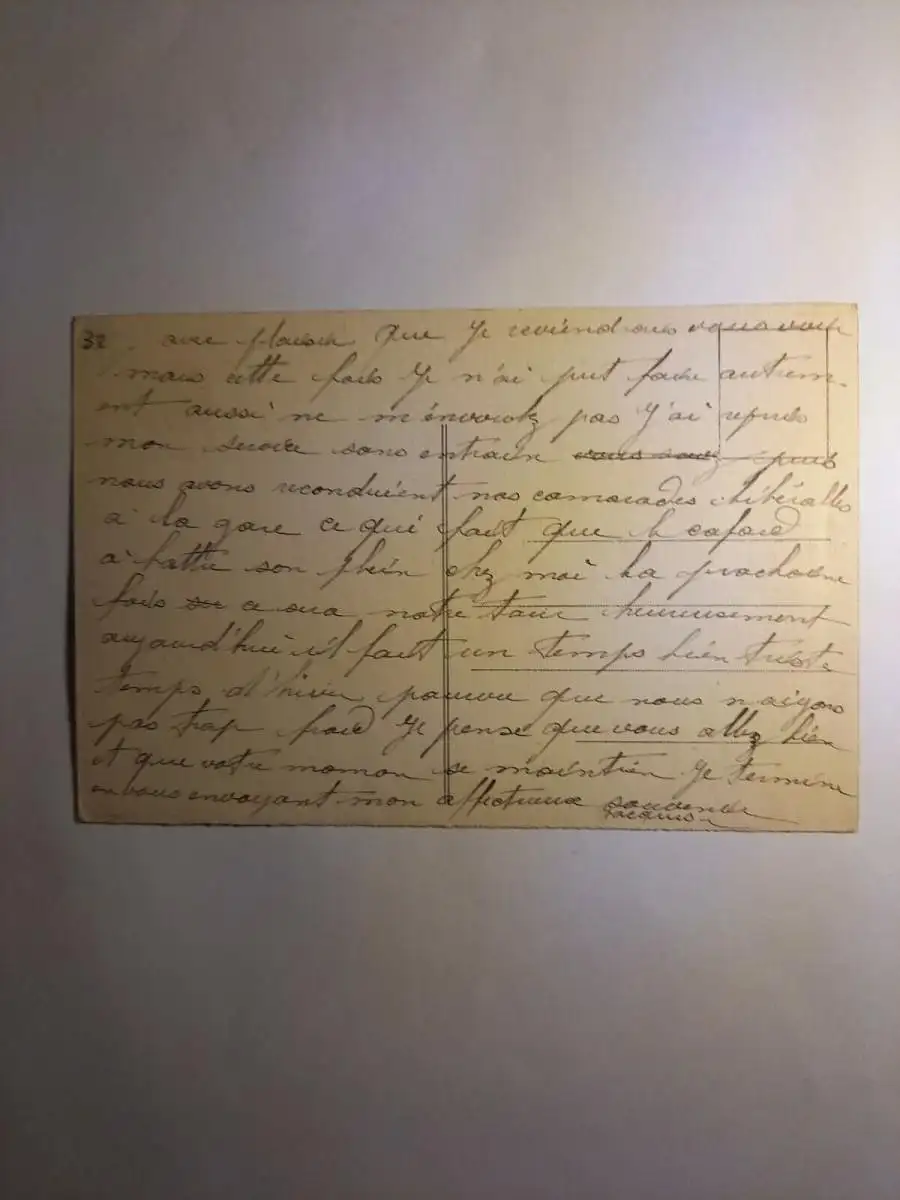 32 avec plaisir que je reviendrais vous voir
mais cette fois je n'ai put faire autrem-
ent aussi ne m'en pas j'ai repris
mon service sans entrain vous avez puis
nous avons reconduient nos camarades libéralles
à la gare ce qui fait que le cafard
à battu son plein chez moi la prochaine
fois ce sera notre tour heureusement
aujourd'hui il fait un temps bien triste
temps d'hiver pourvu que nous n'aiyons
pas trop froid je pense que vous allez bien
et que votre maman se maintien je termine
en vous envoyant mon affectueux souvenir